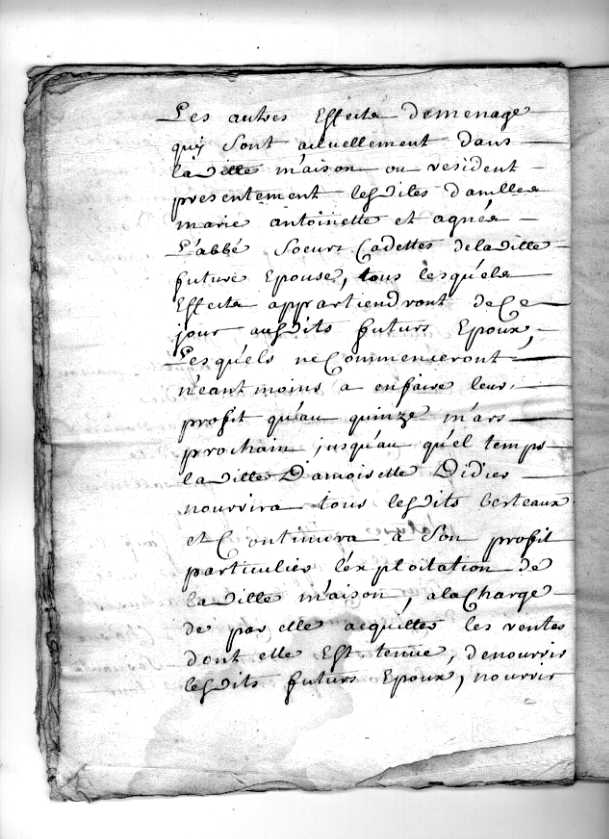 Les autres Effects demenage
quy sont actuellement dans
la ditte m'aison ou resident
presentement lesdites d'amlles
marie antoinette et agnés
L'abbé soeurs Cadettes de laditte
future Epouse, tous lesquéls
Effects appartiendront de Ce
jour ausdits futurs Epoux,
Lesquéls ne Commenceront
néantmoins a enfaire leur
profit qu'au quinze m'ars
prochain jusqu'au quél temps
laditte Damoiselle Didier
nourrira tous lesdits besteaux
et Continuera a Son profit
particulier léxploitation de
laditte m'aison, ala Charge
de par elle acquitter les rentes
dont elle Est tenüe, denourrir
lesdits futurs Epoux, nourrir